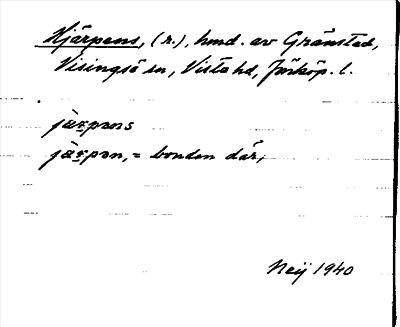 Hjärpens, (r.), hmd. av Gränstad,
Visingsö sn, Vista hd, Jönköp. l.
järpans
järpan, = bonden där,
Neij 1940